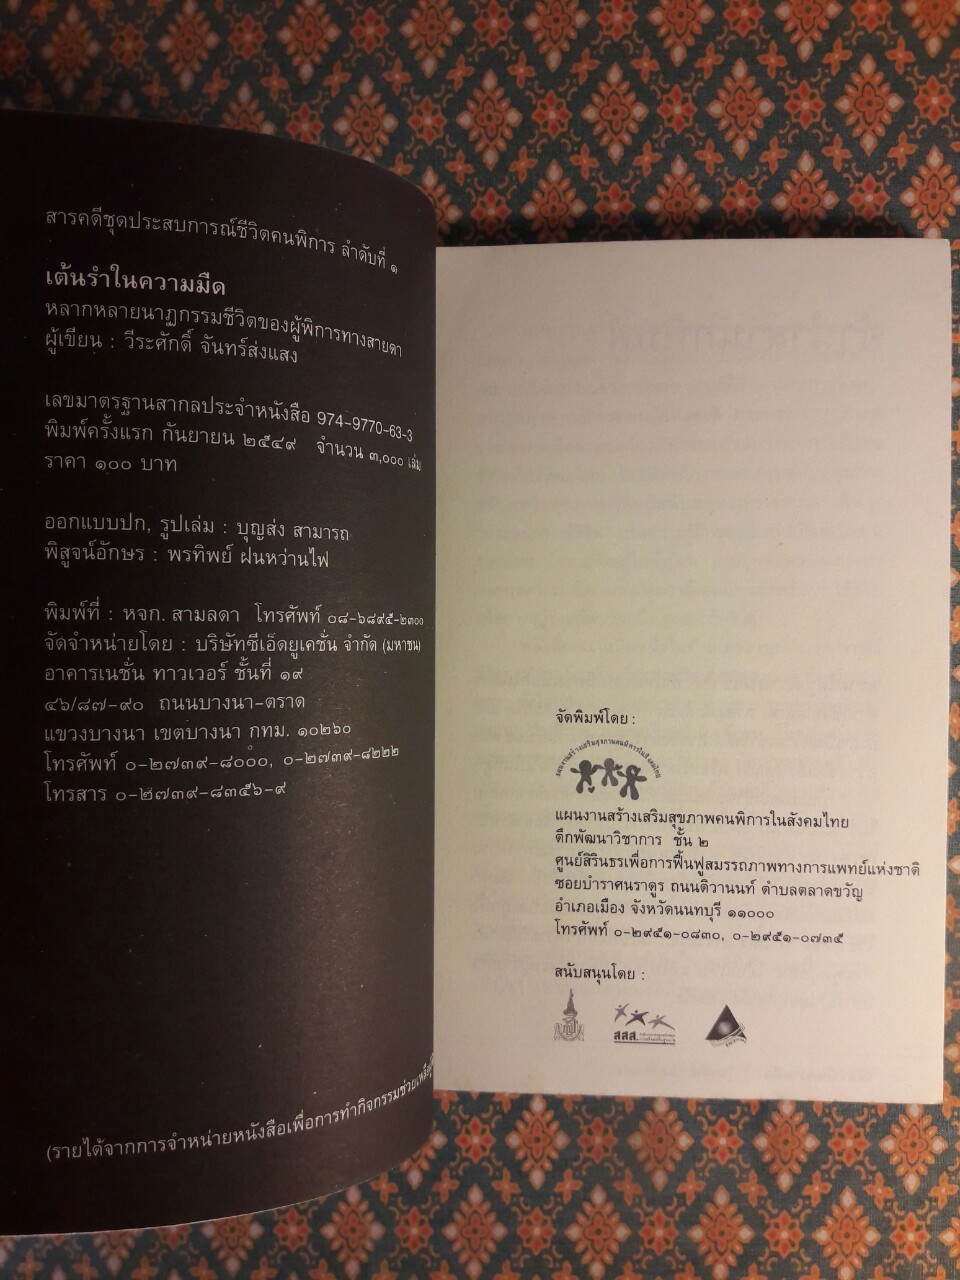 สารคดีชุดประสบการณ์ชีวิตคนพิการ ลำดับที่ ๑
เต้นรำในความมืด
หลากหลายนาฏกรรมชีวิตของผู้พิการทางสายตา
ผู้เขียน : วีระศักดิ์ จันทร์ส่งแสง
เลขมาตรฐานสากลประจำหนังสือ 974-9770-63-3
พิมพ์ครั้งแรก กันยายน ๒๕๔๙ จำนวน ๓,๐๐๐ เล่ม
ราคา ๑๐๐ บาท
ออกแบบปก, รูปเล่ม : บุญส่ง สามารถ
พิสูจน์อักษร : พรทิพย์ ฝนหว่านไฟ
พิมพ์ที่ : หจก. สามลดา โทรศัพท์ ๐๘-๖๘๙๕-๒๓๐๐
จัดจำหน่ายโดย : บริษัทซีเอ็ดยูเคชั่น จำกัด (มหาชน)
อาคารเนชั่น ทาวเวอร์ ชั้นที่ ๑๙
๔๖/๘๗-๙๐ ถนนบางนา-ตราด
แขวงบางนา เขตบางนา กทม. ๑๐๒๖๐
โทรศัพท์ ๐-๒๗๓๙-๘๐๐๐, ๐-๒๗๓๙-๘๒๒๒
โทรสาร ๐-๒๗๓๙-๘๓๕๖-๙
(รายได้จากการจำหน่ายหนังสือเพื่อการทำกิจกรรมช่วยเหลือ
จัดพิมพ์โดย :
แผนงานสร้างเสริมสุขภาพคนพิการในสังคมไทย
แผนงานสร้างเสริมสุขภาพคนพิการในสังคมไทย
ตึกพัฒนาวิชาการ ชั้น ๒
ศูนย์สิรินธรเพื่อการฟื้นฟูสมรรถภาพทางการแพทย์แห่งชาติ
ซอยบำราศนราดูร ถนนติวานนท์ ตำบลตลาดขวัญ
อำเภอเมือง จังหวัดนนทบุรี ๑๑๐๐๐
โทรศัพท์ ๐-๒๙๕๑-๐๘๓๐, ๐-๒๙๕๑-๐๗๓๕
สนับสนุนโดย :
สสส.